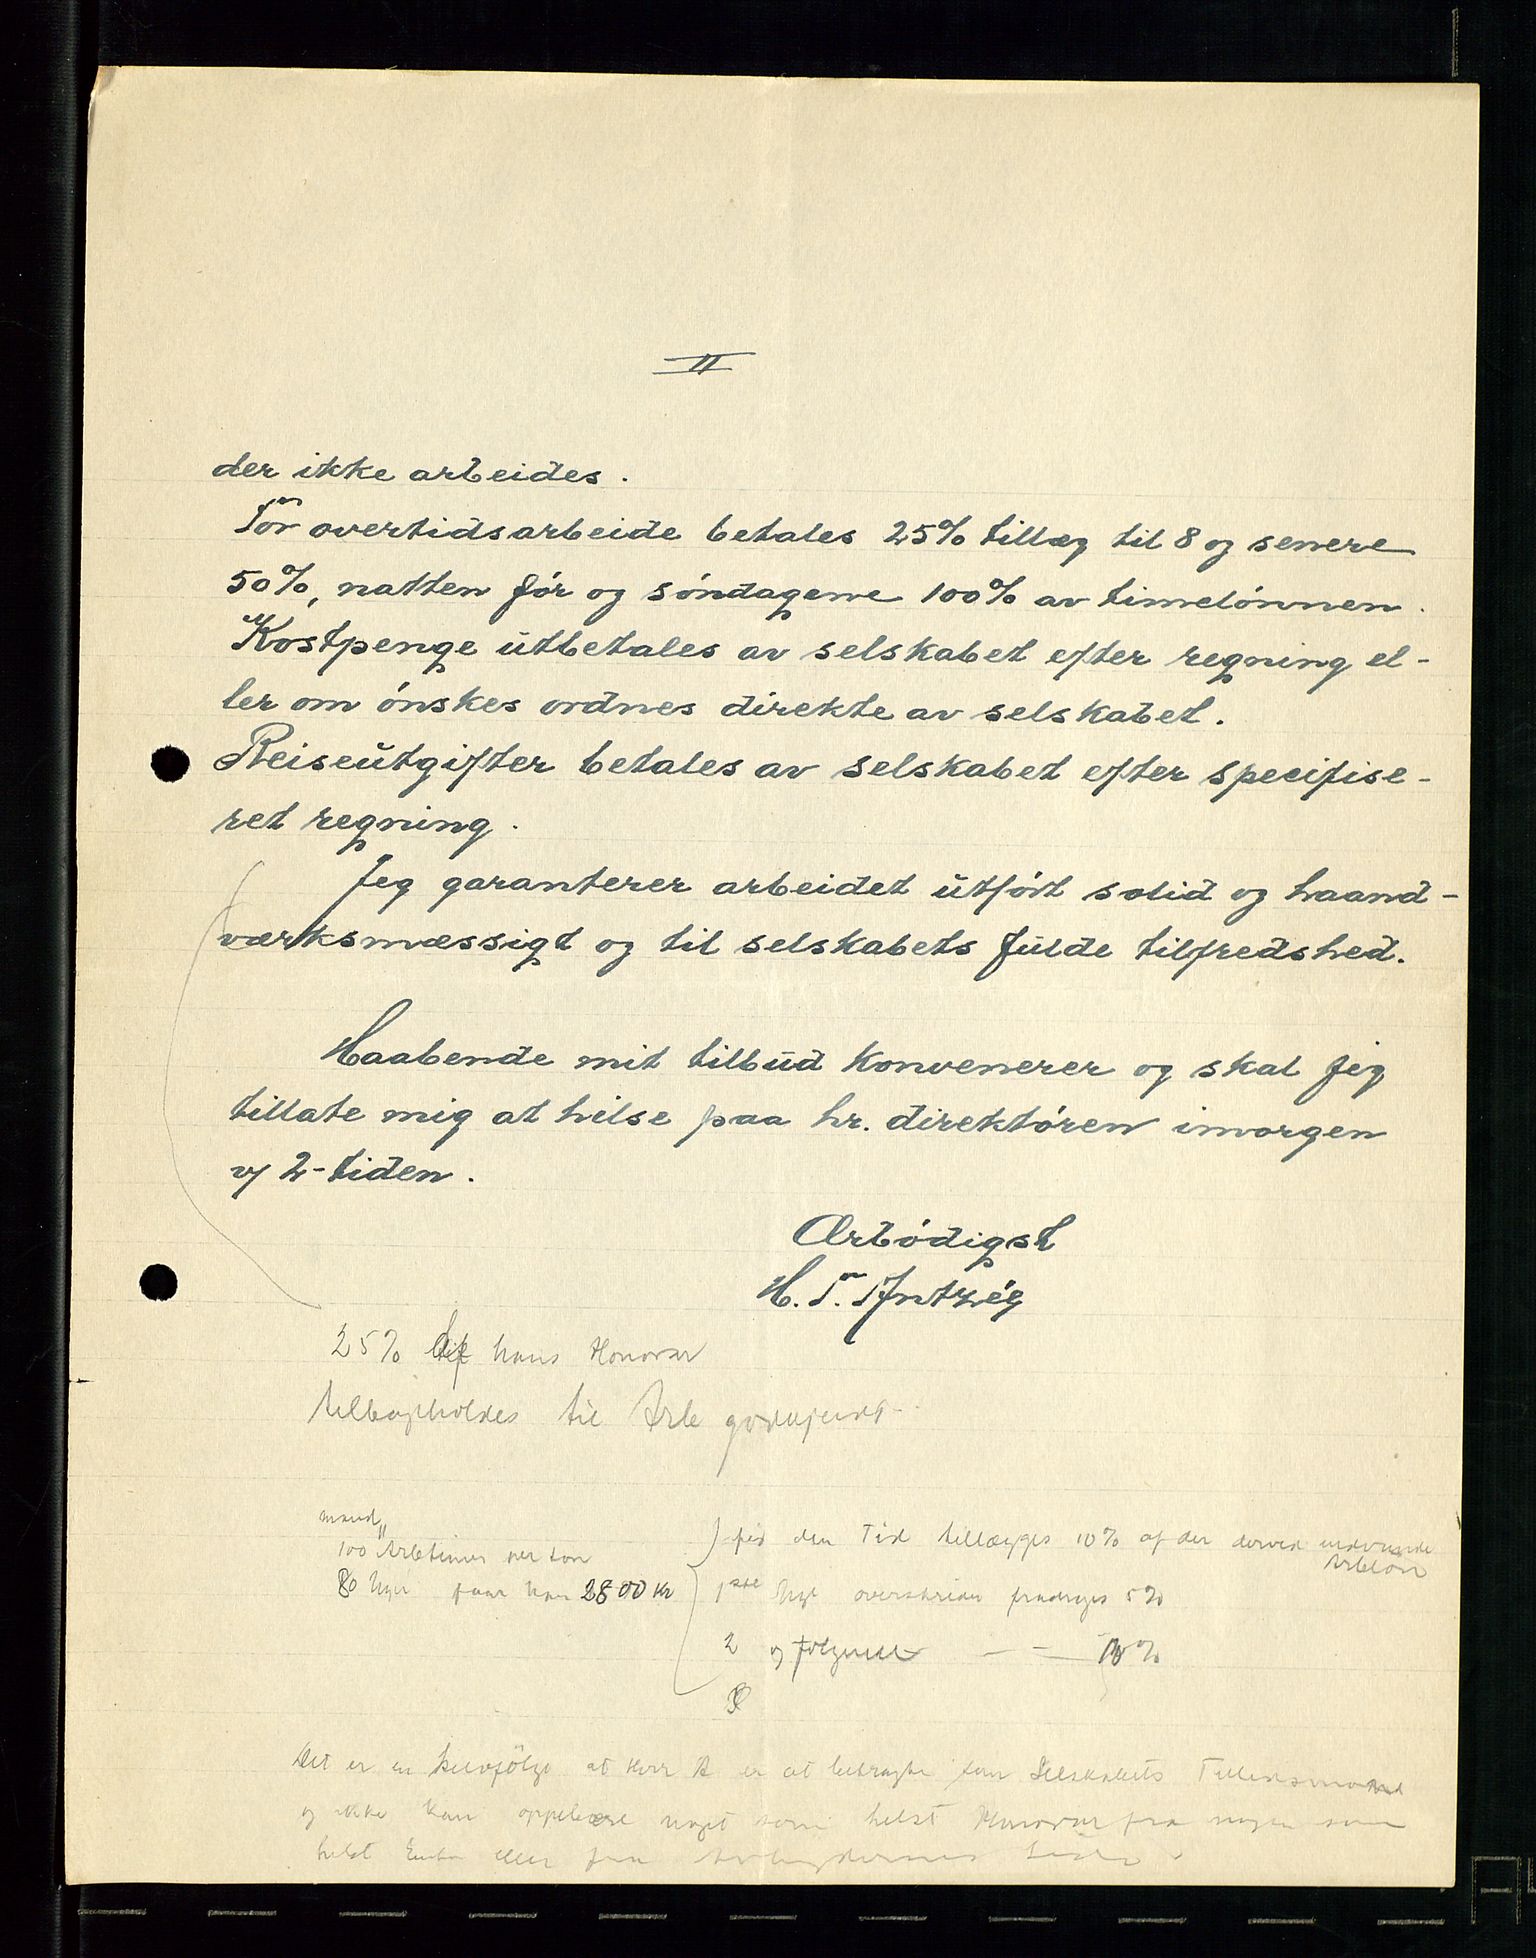 II
der ikke arbeides.
For overtidsarbeide betales 25% tillæg til 8 og senere
50%, natten før og søndagene 100% av timelønnen.
Kostpenge utbetales av selskabet efter regning el-
ler om ønskes ordnes direkte av selskabet.
Reiseutgifter betales av selskabet efter specifise-
ret regning.
Jeg garanterer arbeidet utført solid og haand-
værksmæssigt og til selskabets fulde tilfredshed.
Haabende mit tilbud konvenerer og skal jeg
tillate mig at hilse paa hr. direktøren imorgen
v/ 2-tiden.
Ærbødigst
H. F.
25% af hans Honorar
tilbageholdes til Arb godkjendt
mand
100 Arbtimer per ton
80 faar han 2800 Kr
den Tid tillægges 10% af der derved indvundne
Arbløn
1ste overskrides fradrages 5%
2 og følgende — — 10%
Det er en selvfølge at Herr A er at betragte som Selskabets Tillidsmand
og ikke kan oppebære noget som helst Honorar fra nogen som
helst eller fra Side